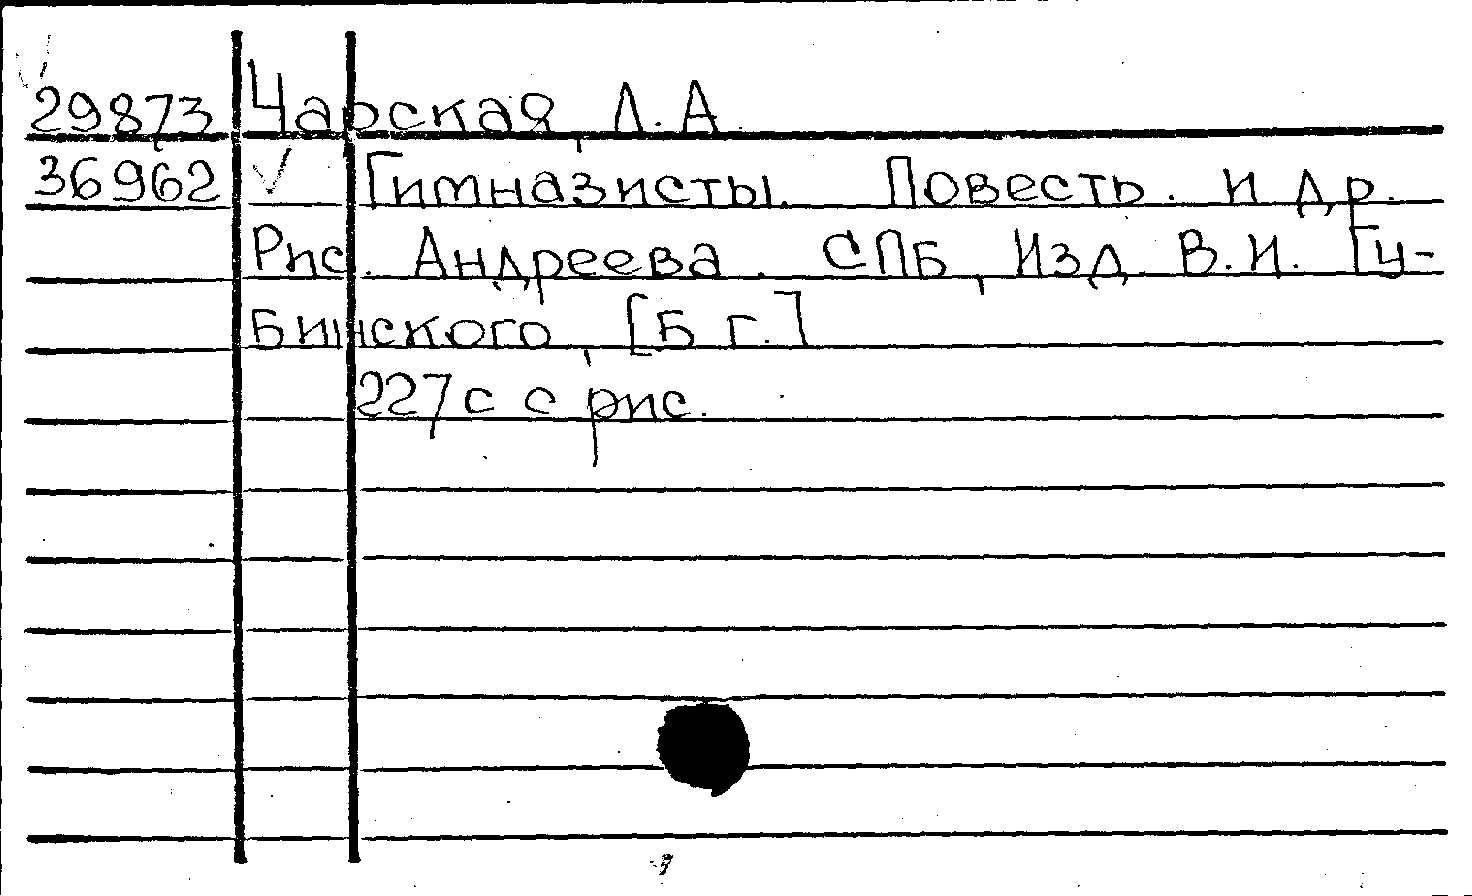 29873 Чарская, Л. А.
36962 √ Гимназисты. Повесть. и др.
Рис. Андреева. СПБ, Изд. В. И. Гу-
бинского, [Б г.]
227 с с рис.